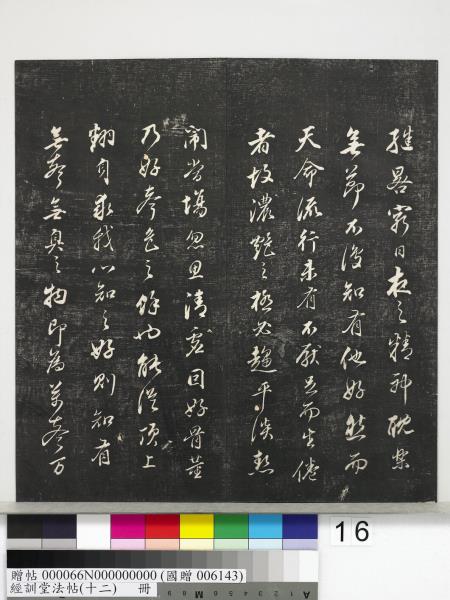 繼晷窮日夜之精神耽樂
無節不復知有他好然而
天命流行未有不厭足而生倦
者故濃艷之極必趨平淡熱
鬧當場忽思清虛因好骨董
乃好奢色之餘也能從頂上
翻身歇我心知之好則知有
無聲無臭之物即為萬聲萬
16
贈帖 000066N000000000 (國贈 006143)
經訓堂法帖(十二) 冊